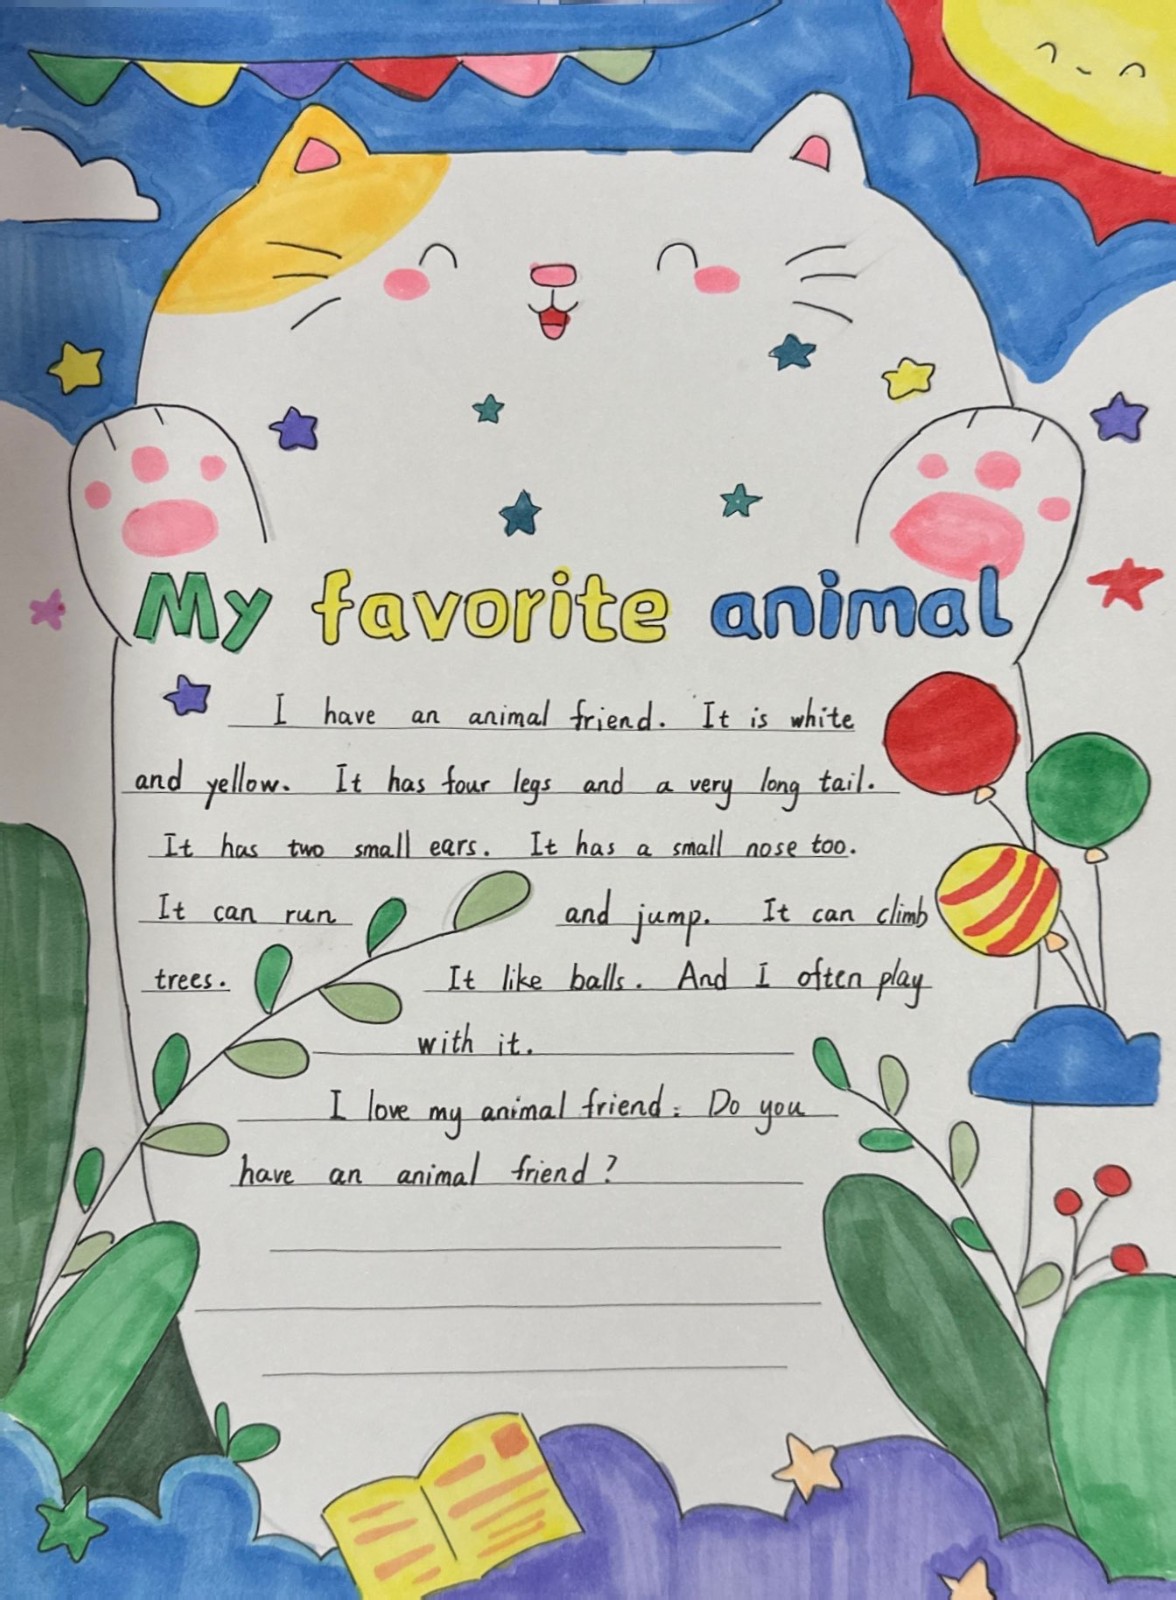 My favorite animal
I have an animal friend. It is white
and yellow. It has four legs and a very long tail.
It has two small ears. It has a small nose too.
It can run and jump. It can climb
trees. It like balls. And I often play
with it.
I love my animal friend. Do you
have an animal friend?